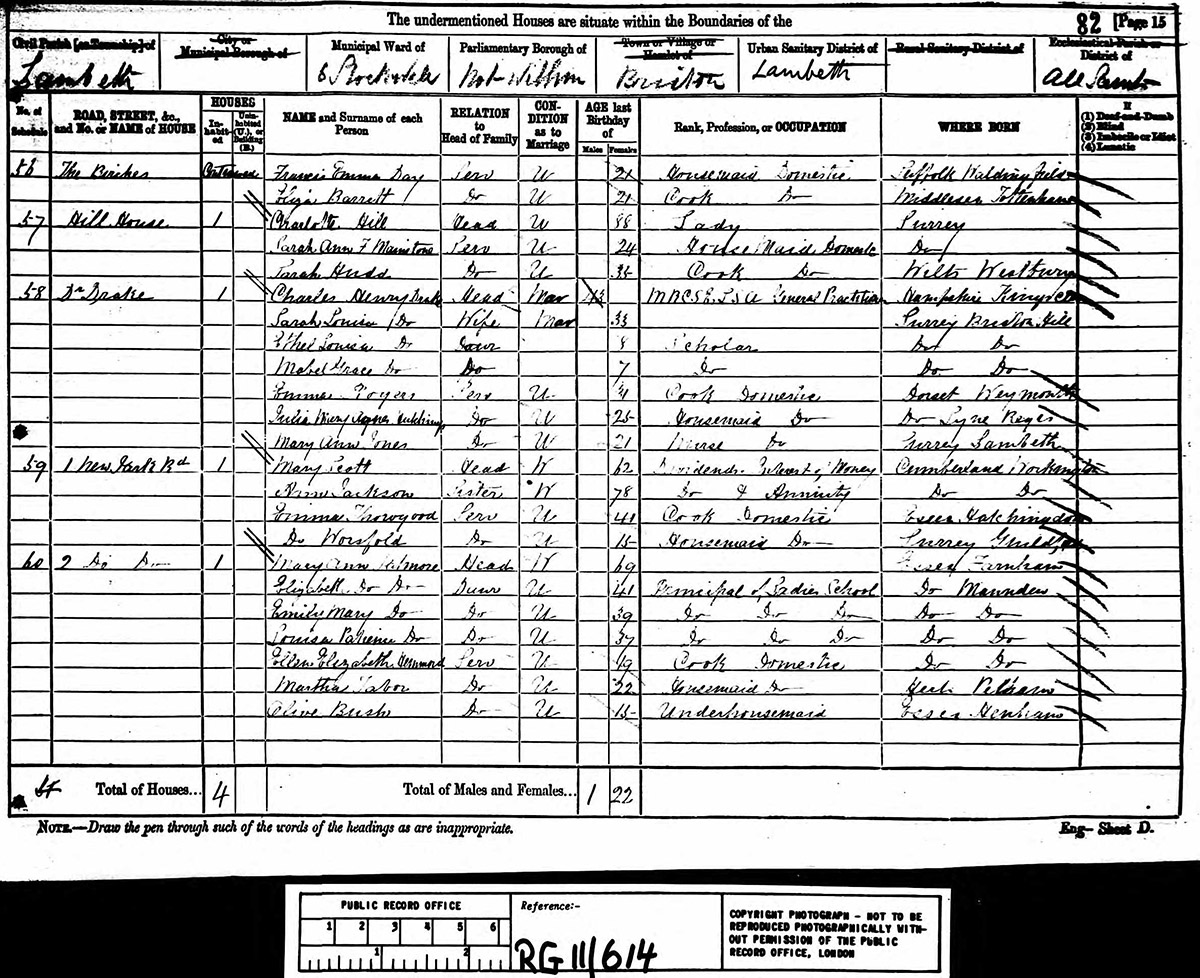 The undermentioned Houses are situate within the Boundaries of the
82 [Page 15
Civil Parish [or Township] of
City or Municipal Borough of
Municipal Ward of
Parliamentary Borough of
Town or Village or Hamlet of
Urban Sanitary District of
Rural Sanitary District of
Ecclesiastical Parish or District of
Lambeth
Brixton
Lambeth
All Saints
No. of Schedule
ROAD, STREET, &c., and No. or NAME of HOUSE
HOUSES
In-habit-ed
Unin-habited (U.), or Building (B.)
NAME and Surname of each Person
RELATION to Head of Family
CON-DITION as to Marriage
AGE last Birthday of
Males
Females
Rank, Profession, or OCCUPATION
WHERE BORN
If
(1) Deaf-and-Dumb
(2) Blind
(3) Imbecile or Idiot
(4) Lunatic
56 The Birches Francis Emma Day Serv U 21 Housemaid Domestic Suffolk Waldingfield
Eliza Barrett Do U 21 Cook Do Middlesex Tottenham
57 Hill House 1 Charlotte Hill Head U 88 Lady Surrey
Sarah Ann F Serv U 24 House Maid Domestic Do
Sarah Hudd Do U 35 Cook Do Wilts Westbury
58 Dr Drake 1 Charles Henry Drake Head Mar 43 General Practitioner Hampshire
Sarah Louisa Do Wife Mar 33 Surrey Brixton Hill
Ethel Louisa Do Daur 8 Scholar Do Do
Mabel Grace Do Do 7 Do Do Do
Emma Serv U Cook Domestic Dorset Weymouth
Julia Mary Agnes Do U 25 Housemaid Do Do Lyne Regis
Mary Ann Jones Do U 21 Nurse Do Surrey Lambeth
59 1 New Park Rd 1 Mary Scott Head W 62 Dividends Interest of Money Cumberland Workington
Ann Jackson Sister W 78 Do & Annuity Do Do
Emma Thorogood Serv U 41 Cook Domestic Essex
Do Worsfold Do U 15 Housemaid Do Surrey
60 2 Do Do 1 Mary Ann Head W 69 Essex Farnham
Elizabeth Do Do Daur U 41 Principal of Ladies School Do Maunden
Emily Mary Do Do U 39 Do Do Do Do Do
Louisa Patience Do Do U 37 Do Do Do Do Do
Ellen Elizabeth Serv U 19 Cook Domestic Do Do
Martha Tabor Do U 22 Housemaid Do Herts Pelham
Olive Bush Do U 15 Underhousemaid Essex Henham
4 Total of Houses... 4
Total of Males and Females... 1 22
NOTE.—Draw the pen through such of the words of the headings as are inappropriate.
Eng— Sheet D.
PUBLIC RECORD OFFICE
1 2 3 4 5 6
1 2
Reference:-
RG 11/614
COPYRIGHT PHOTOGRAPH - NOT TO BE
REPRODUCED PHOTOGRAPHICALLY WITH-
OUT PERMISSION OF THE PUBLIC
RECORD OFFICE, LONDON